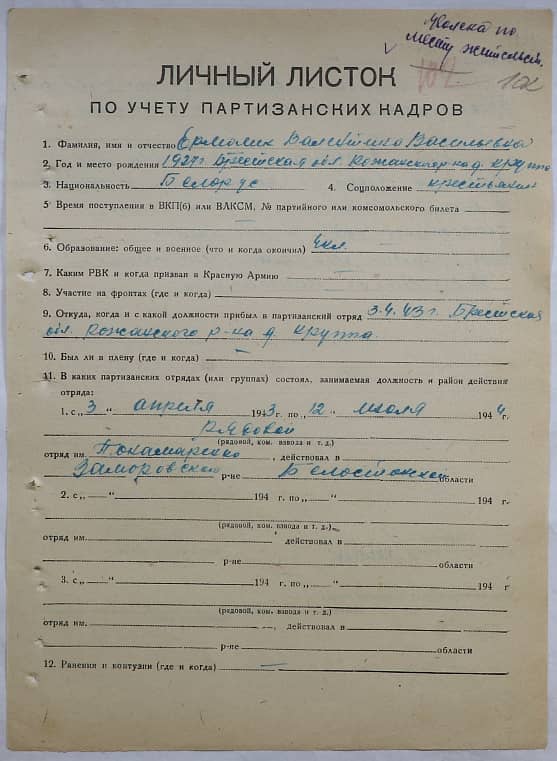 по
месту жительст.
102
ЛИЧНЫЙ ЛИСТОК
ПО УЧЕТУ ПАРТИЗАНСКИХ КАДРОВ
1. Фамилия, имя и отчество Ермолик Валентина Васильевна
2. Год и место рождения 1927г Брестская обл. Рожанского р-на д. Круппа
3. Национальность Белорус 4. Соцположение крестьянин
5 Время поступления в ВКП(б) или ВЛКСМ, № партийного или комсомольского билета
6. Образование: общее и военное (что и когда окончил) 4кл.
7. Каким РВК и когда призван в Красную Армию
8. Участие на фронтах (где и когда)
9. Откуда, когда и с какой должности прибыл в партизанский отряд 3.4.43г. Брестская
обл. Рожанского р-на д. Круппа.
10. Был ли в плену (где и когда) —
11. В каких партизанских отрядах (или группах) состоял, занимаемая должность и район действия
отряда:
1. с „3" апреля 1943г. по „12" июля 1944г.
Рядовой
(рядовой, ком. взвода и т. д.)
отряд им. Понамаренко, действовал в
Заморовском р-не Белостокской области
2. с „ " 194 г. по „ " 194 г.
(рядовой, ком. взвода и т. д.)
отряд им. , действовал в
р-не области
3. с „ " 194 г. по „ " 194 г
(рядовой, ком. взвода и т. д.)
отряд им. , действовал в
р-не области
12. Ранения и контузии (где и когда) —